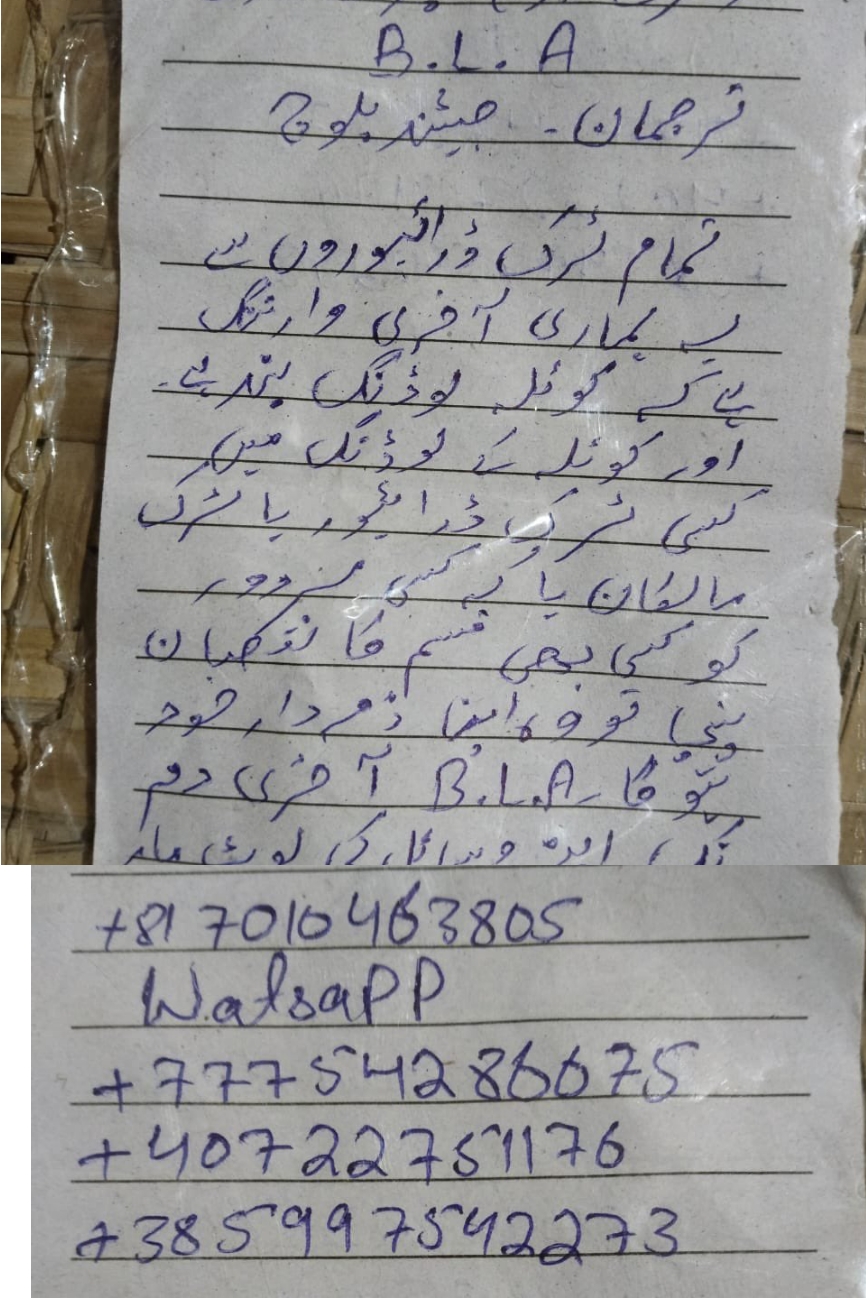 B.L.A
ترجمان۔ جیئند بلوچ
تمام ٹرک ڈرائیوروں سے
یہ ہماری آخری وارننگ
ہے کہ کوئلہ لوڈنگ بند ہے۔
اور کوئلہ کے لوڈنگ میں
کسی ٹرک ڈرائیور یا ٹرک
مالکان یا کہ کسی مزدور
کو کسی بھی قسم کا نقصان
پہنچا تو وہ اپنا ذمہ دار خود
ہو گا۔ B.L.A آخری دم
تک اپنے وسائل کی لوٹ مار
+81 7010463805
WatsaPP
+77754286675
+40722751176
+385997542273